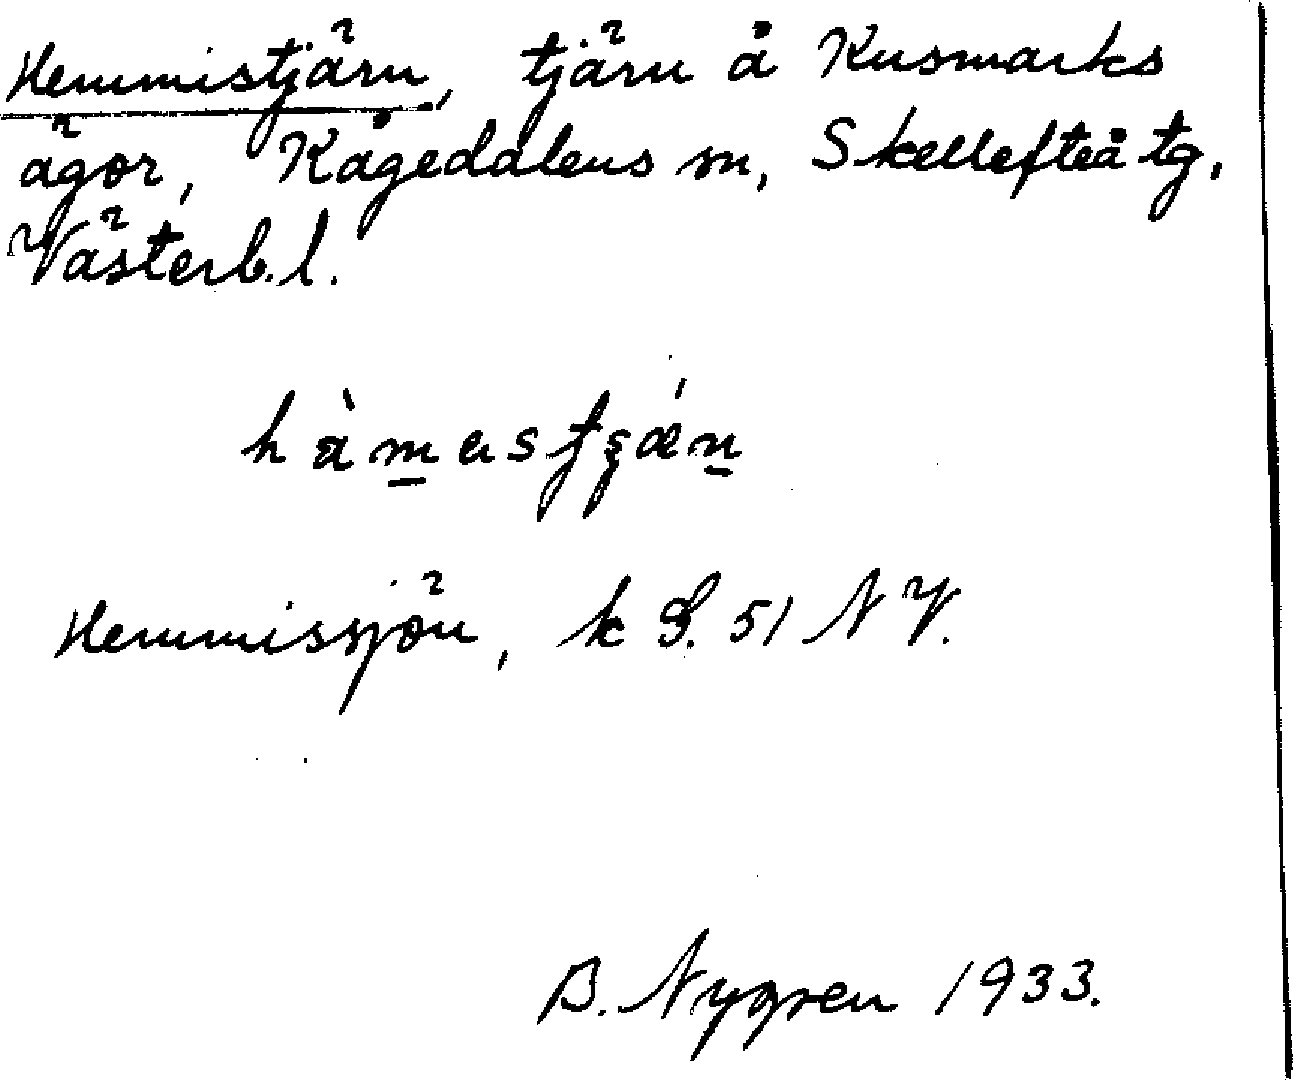 Hemmistjärn, tjärn å Kusmarks
ägor, Kågedalens sn, Skellefteå tg,
Västerb. l.
Hemmissjön, k S. 51 NV.
B. Nygren 1933.